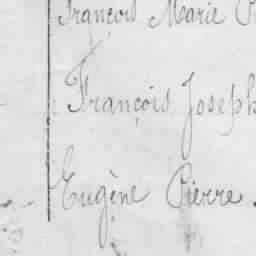 François Marie
François Joseph
Eugène Pierre